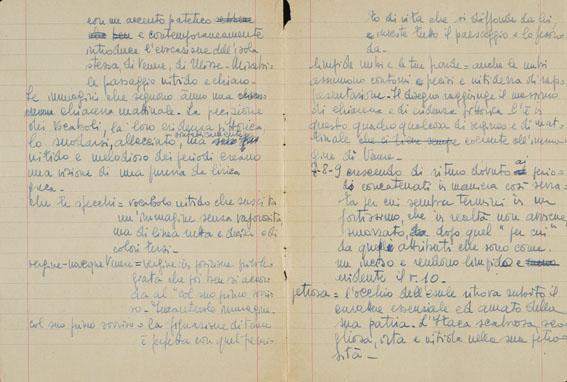 con un accento patetico
e contemporaneamente
introduce l'evocazione dell'isola
stessa, di Venere, di Ulisse.
le passaggio nitido e chiaro.
Le immagini che seguono hanno una
chiarezza matinale. La precisione
dei vocaboli, la loro evidenza pittorica
lo snodarsi, allacciato, ma
nitido e melodioso dei periodi creano
una visione di una purezza da lirica
greca.
che te specchi = vocabolo nitido che suscita
un'immagine senza vaporosità,
ma di linea netta e decisa e di
colori tersi.
vergine - nacque Venere = vergine in posizione
che poi ben si accor
da al "col suo primo sorri
so". Incantevole immagine.
col suo primo sorriso = la figurazione di Venere
è perfetta con quel
to di vita che si diffonde da lei
e investe tutto il paesaggio e lo
da.
limpide nubi e le tue fronde = anche le nubi
assumono contorni precisi e nitidezza di rap
presentazione. Il disegno raggiunge il massimo
di chiarezza e di evidenza pittorica. C'è in
questo quadro qualcosa di segreto e di mat
tinale coerente all'imma
gine di Venere.
7-8-9 crescendo di ritmo dovuto ai perio
di concatenati in maniera così serra
ta per cui sembra termini in un
fortissimo, che in realtà non avviene
smorzato, dopo quel "per cui"
da quegli attributi che sono come
un inciso e rendono limpido e
evidente il v. 10.
petrosa = l'occhio dell'esule ritrova subito il
carattere essenziale ed amato della
sua patria. L'Itaca scabrosa, sco
gliosa, irta e nitida nella sua petro
sità.